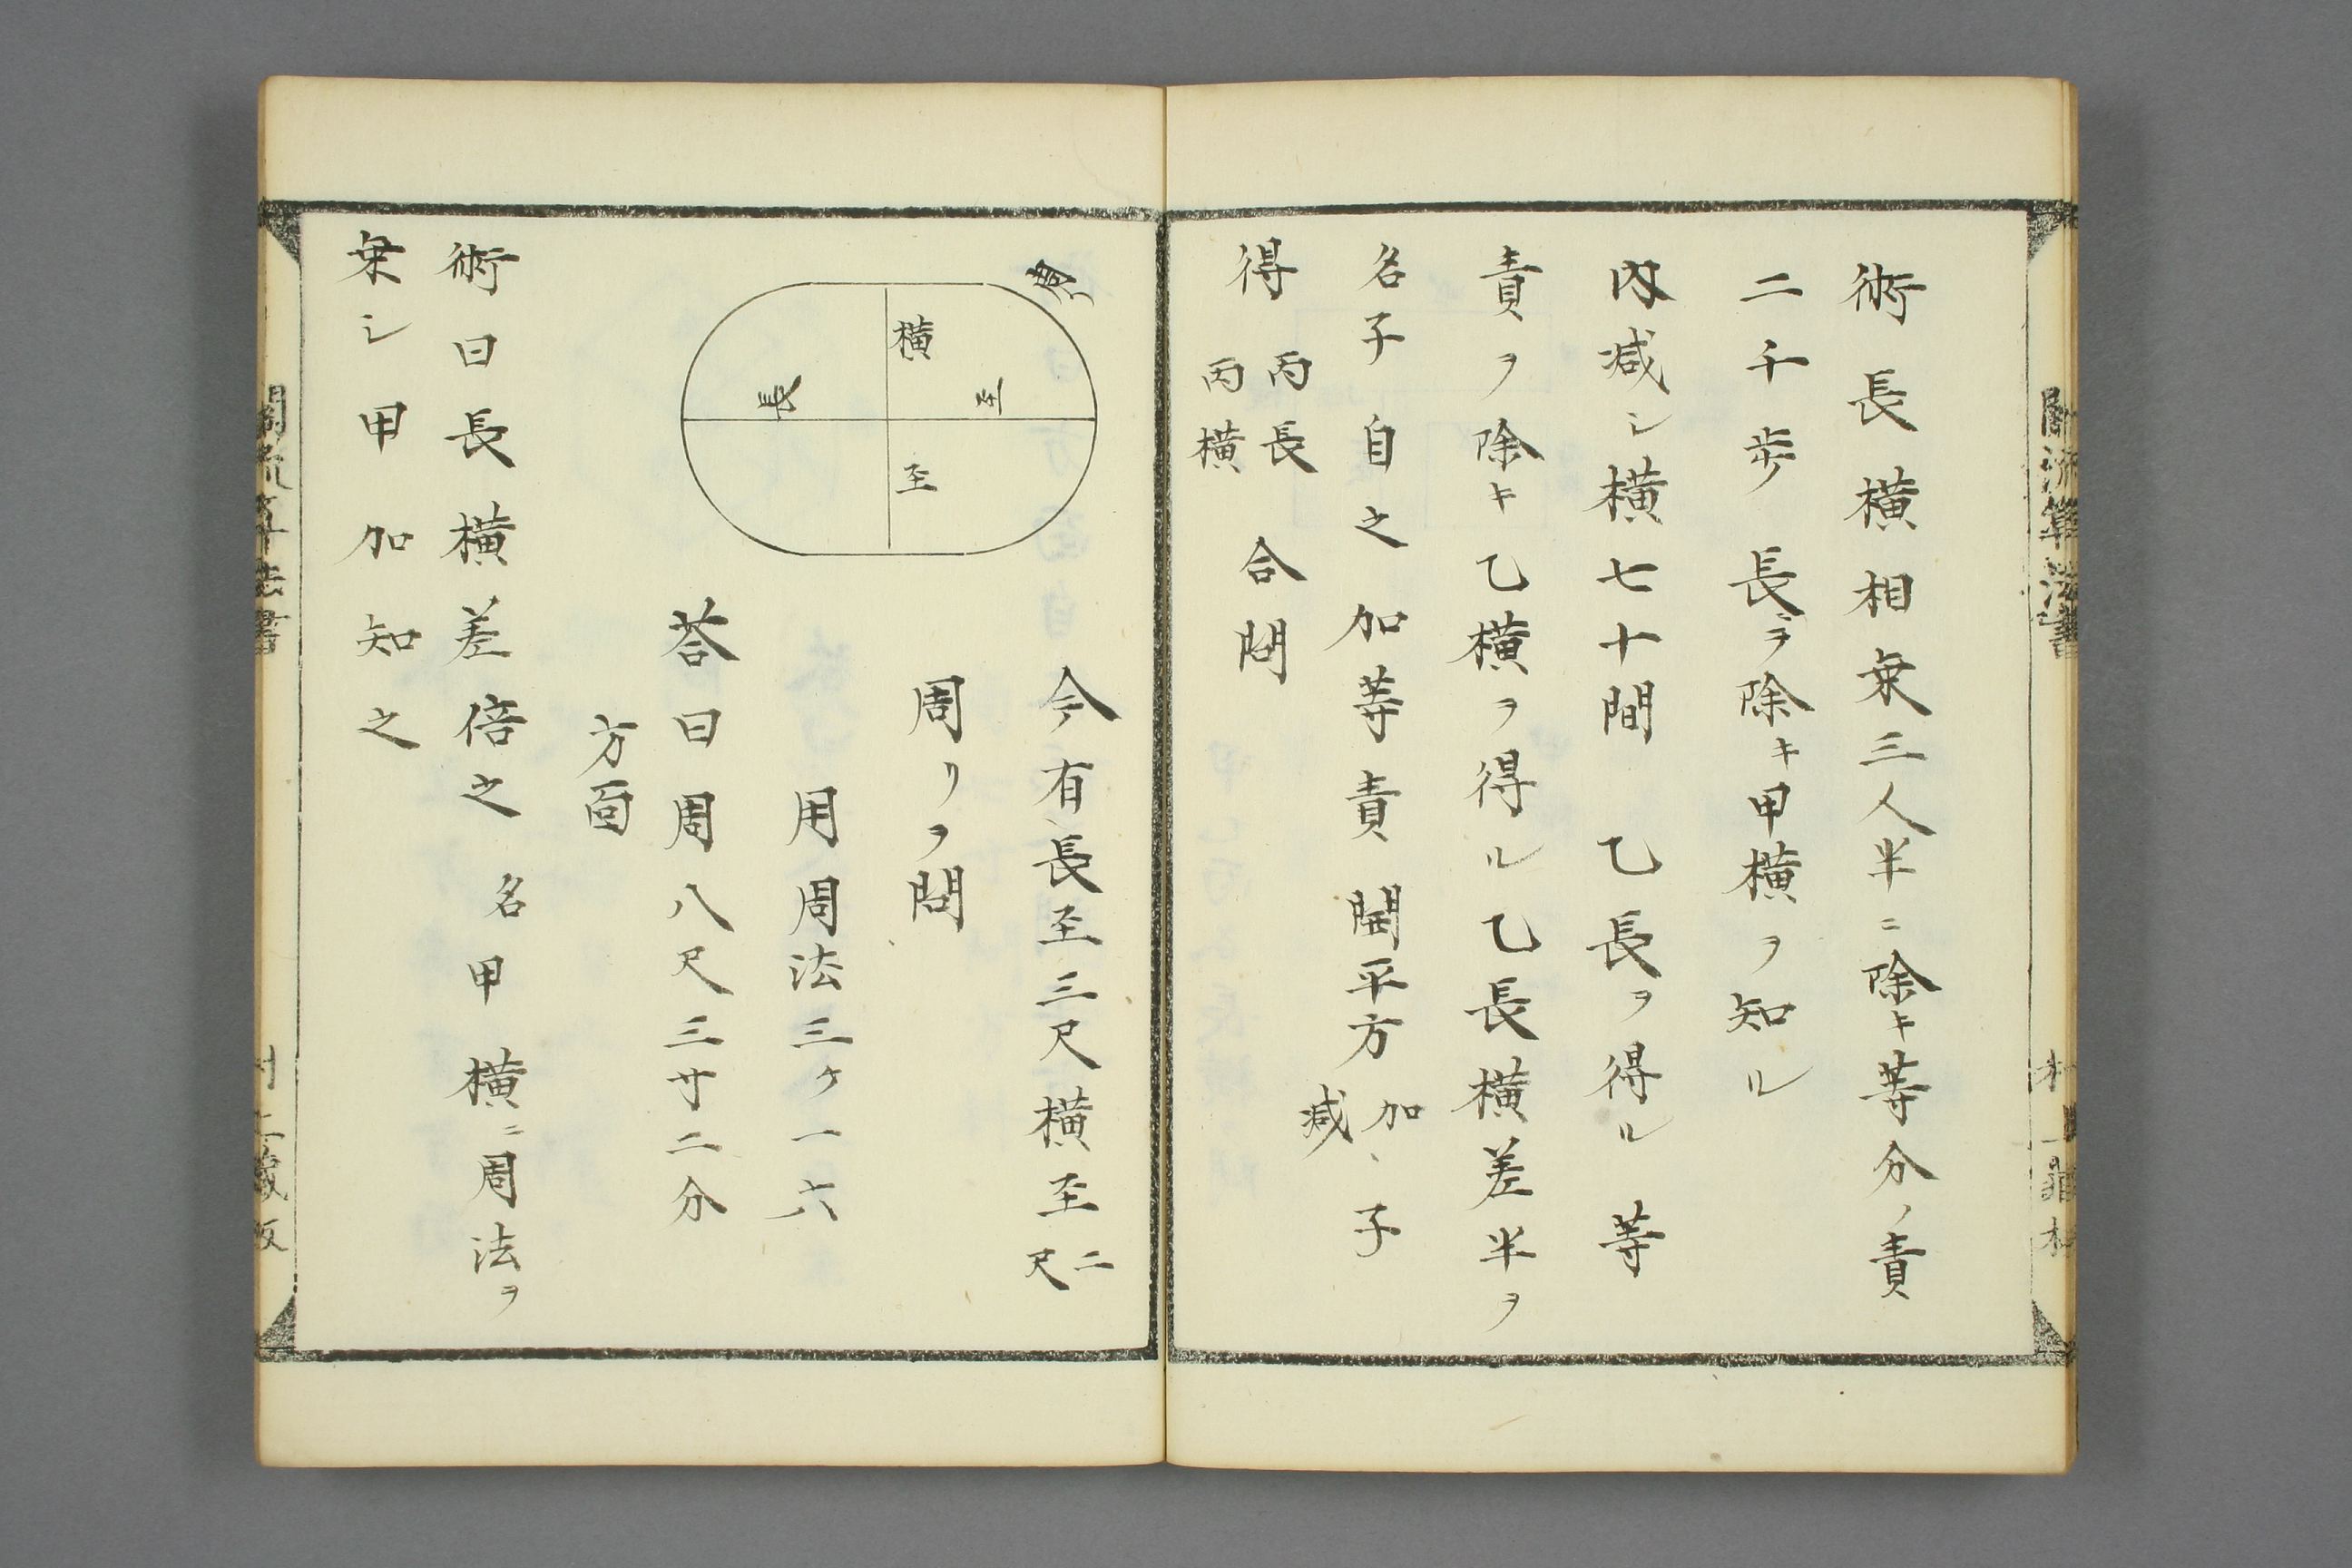 術長横相乗三人半ニ除キ等分ノ責
二千歩長ヲ除キ甲横ヲ知ル
内減シ横七十間乙長ヲ得ル等
責ヲ除キ乙横ヲ得ル乙長横差半ヲ
名子自之加等責開平方加減子
得丙長丙横合問
今有長至三尺横至二尺
周リヲ問
用周法三ケ一六
答曰周八尺三寸二分
方面
周
横
至
長
至
術曰長横差倍之名甲横ニ周法ヲ
乗シ甲加知之
關流算法書